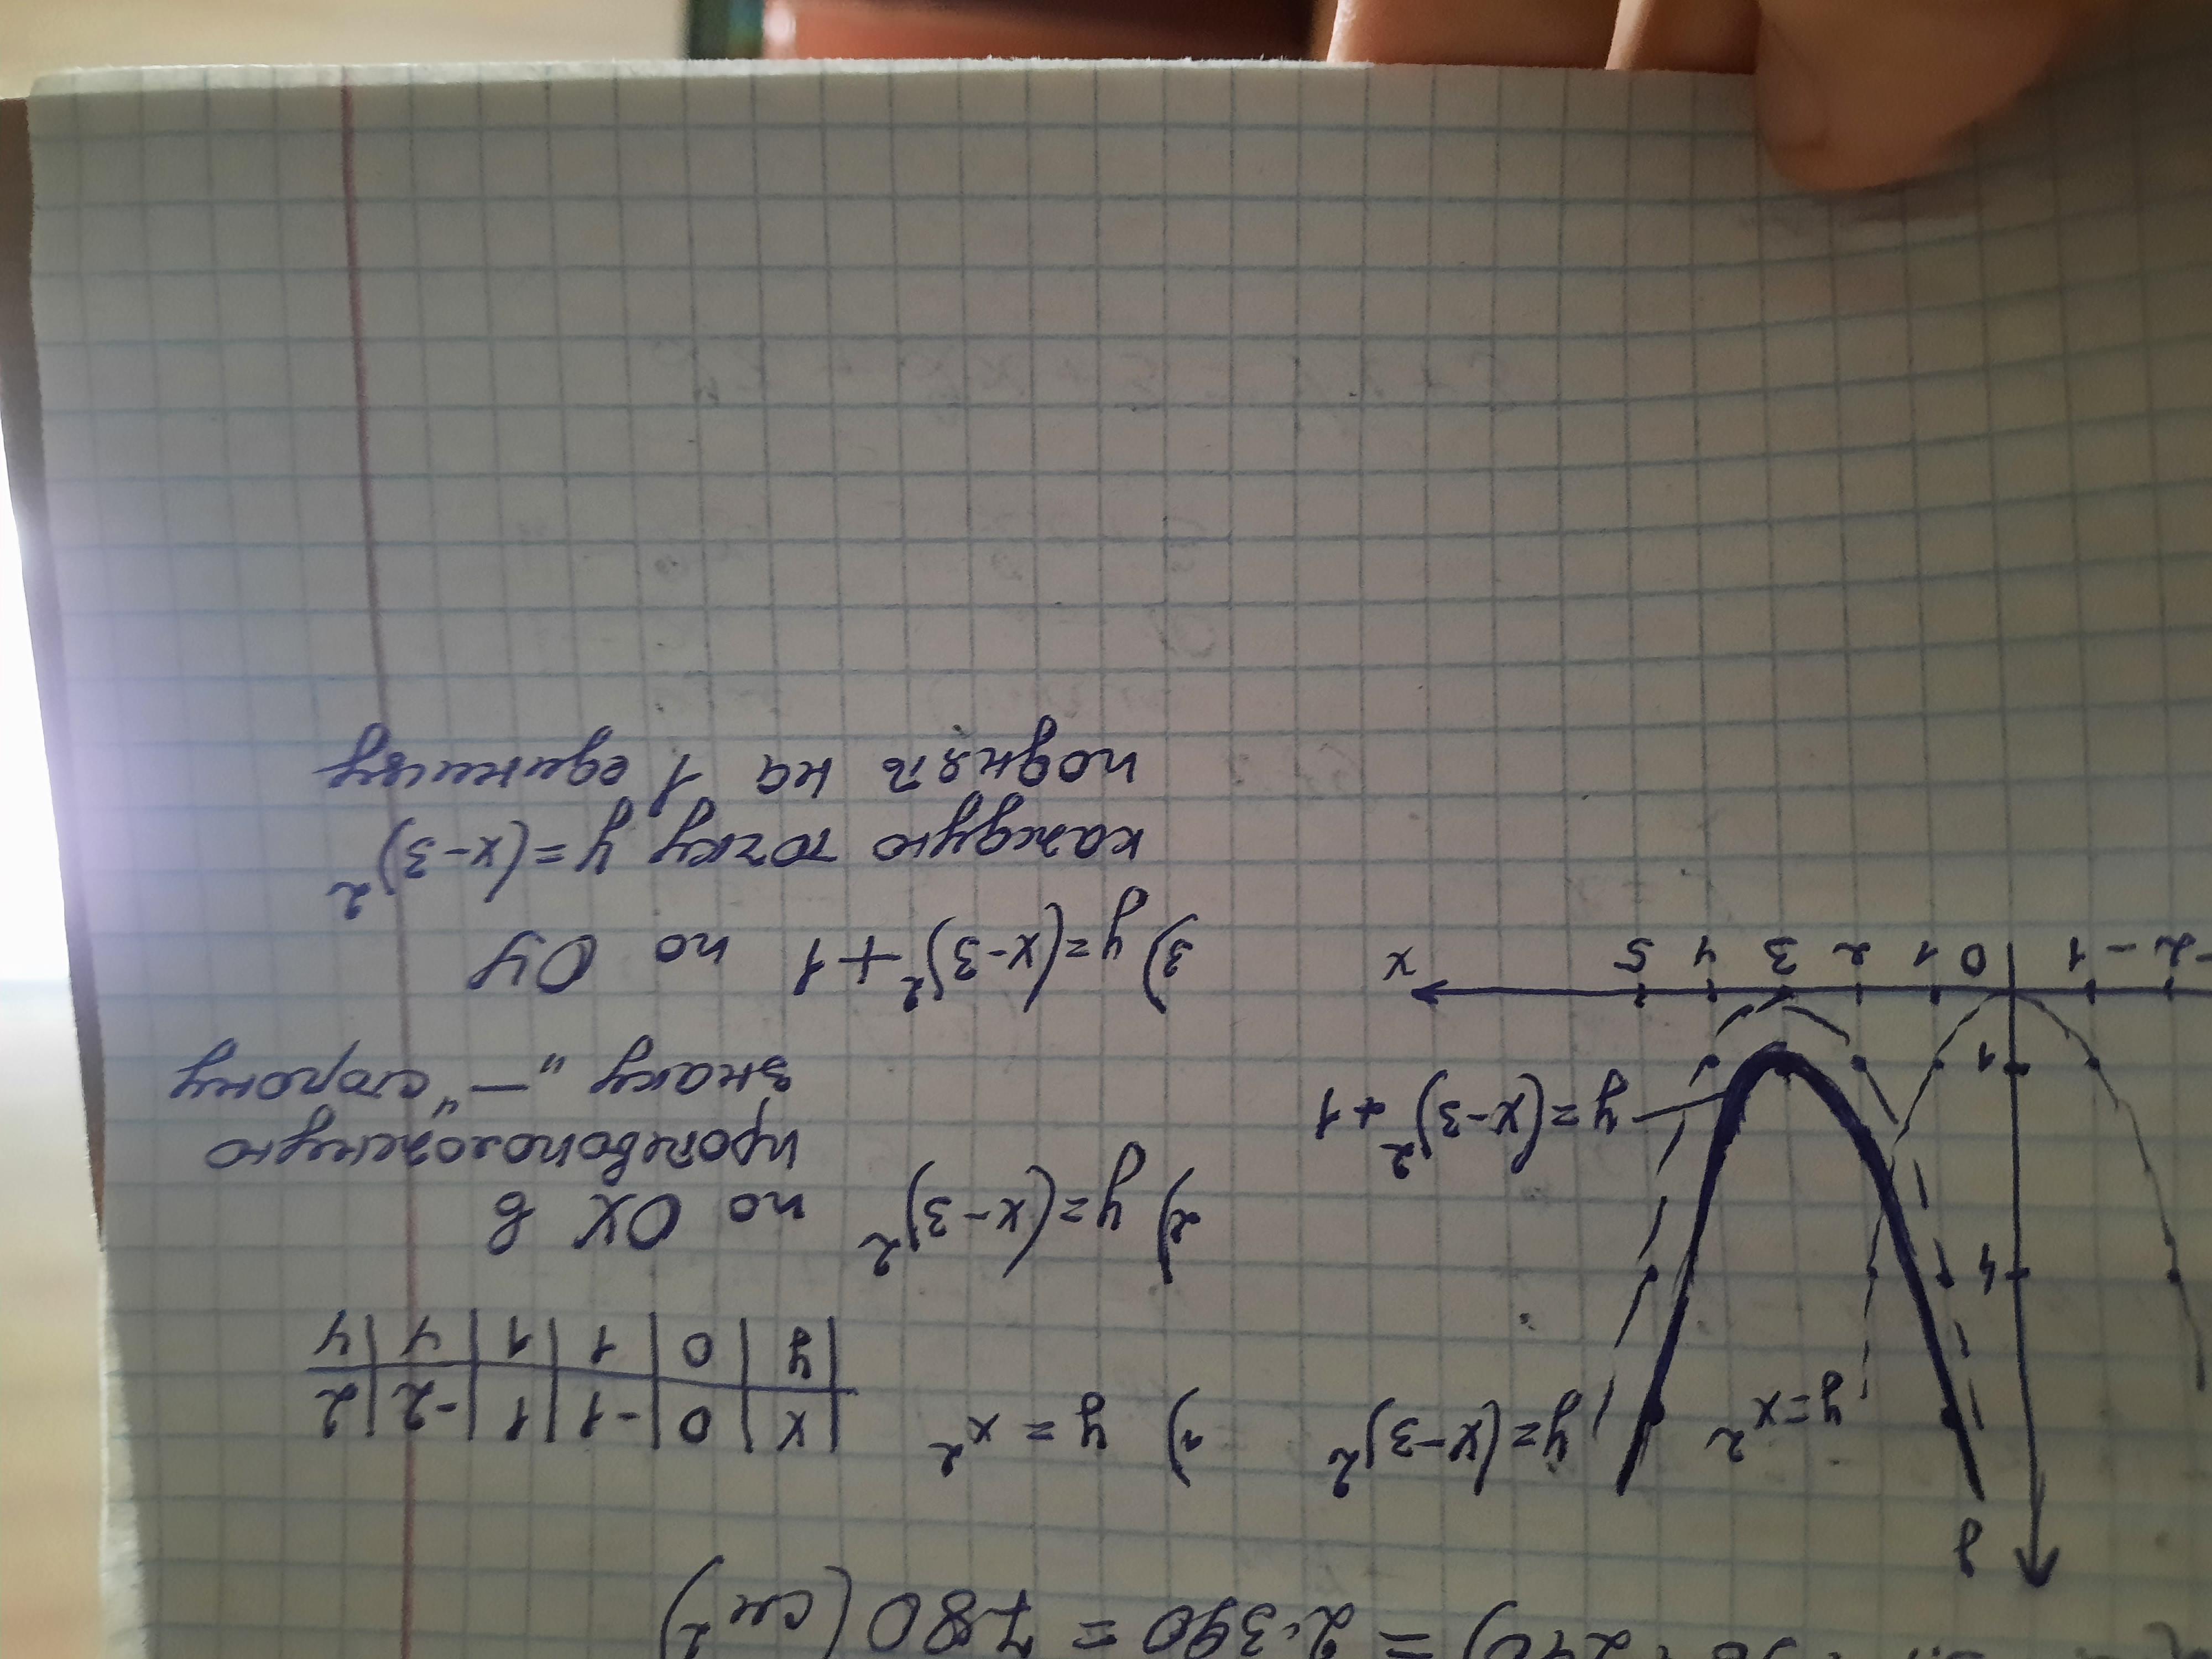 = 2·390 = 780 (см²)
y
y=x²
y=(x-3)²
4
1
y=(x-3)²+1
-2 -1 0 1 2 3 4 5 x
1) y = x²
x | 0 | -1 | 1 | -2 | 2
y | 0 | 1 | 1 | 4 | 4
2) y=(x-3)² по OX в
противоположную
знаку „—“ сторону
3) y=(x-3)²+1 по OY
каждую точку y=(x-3)²
поднять на 1 единицу